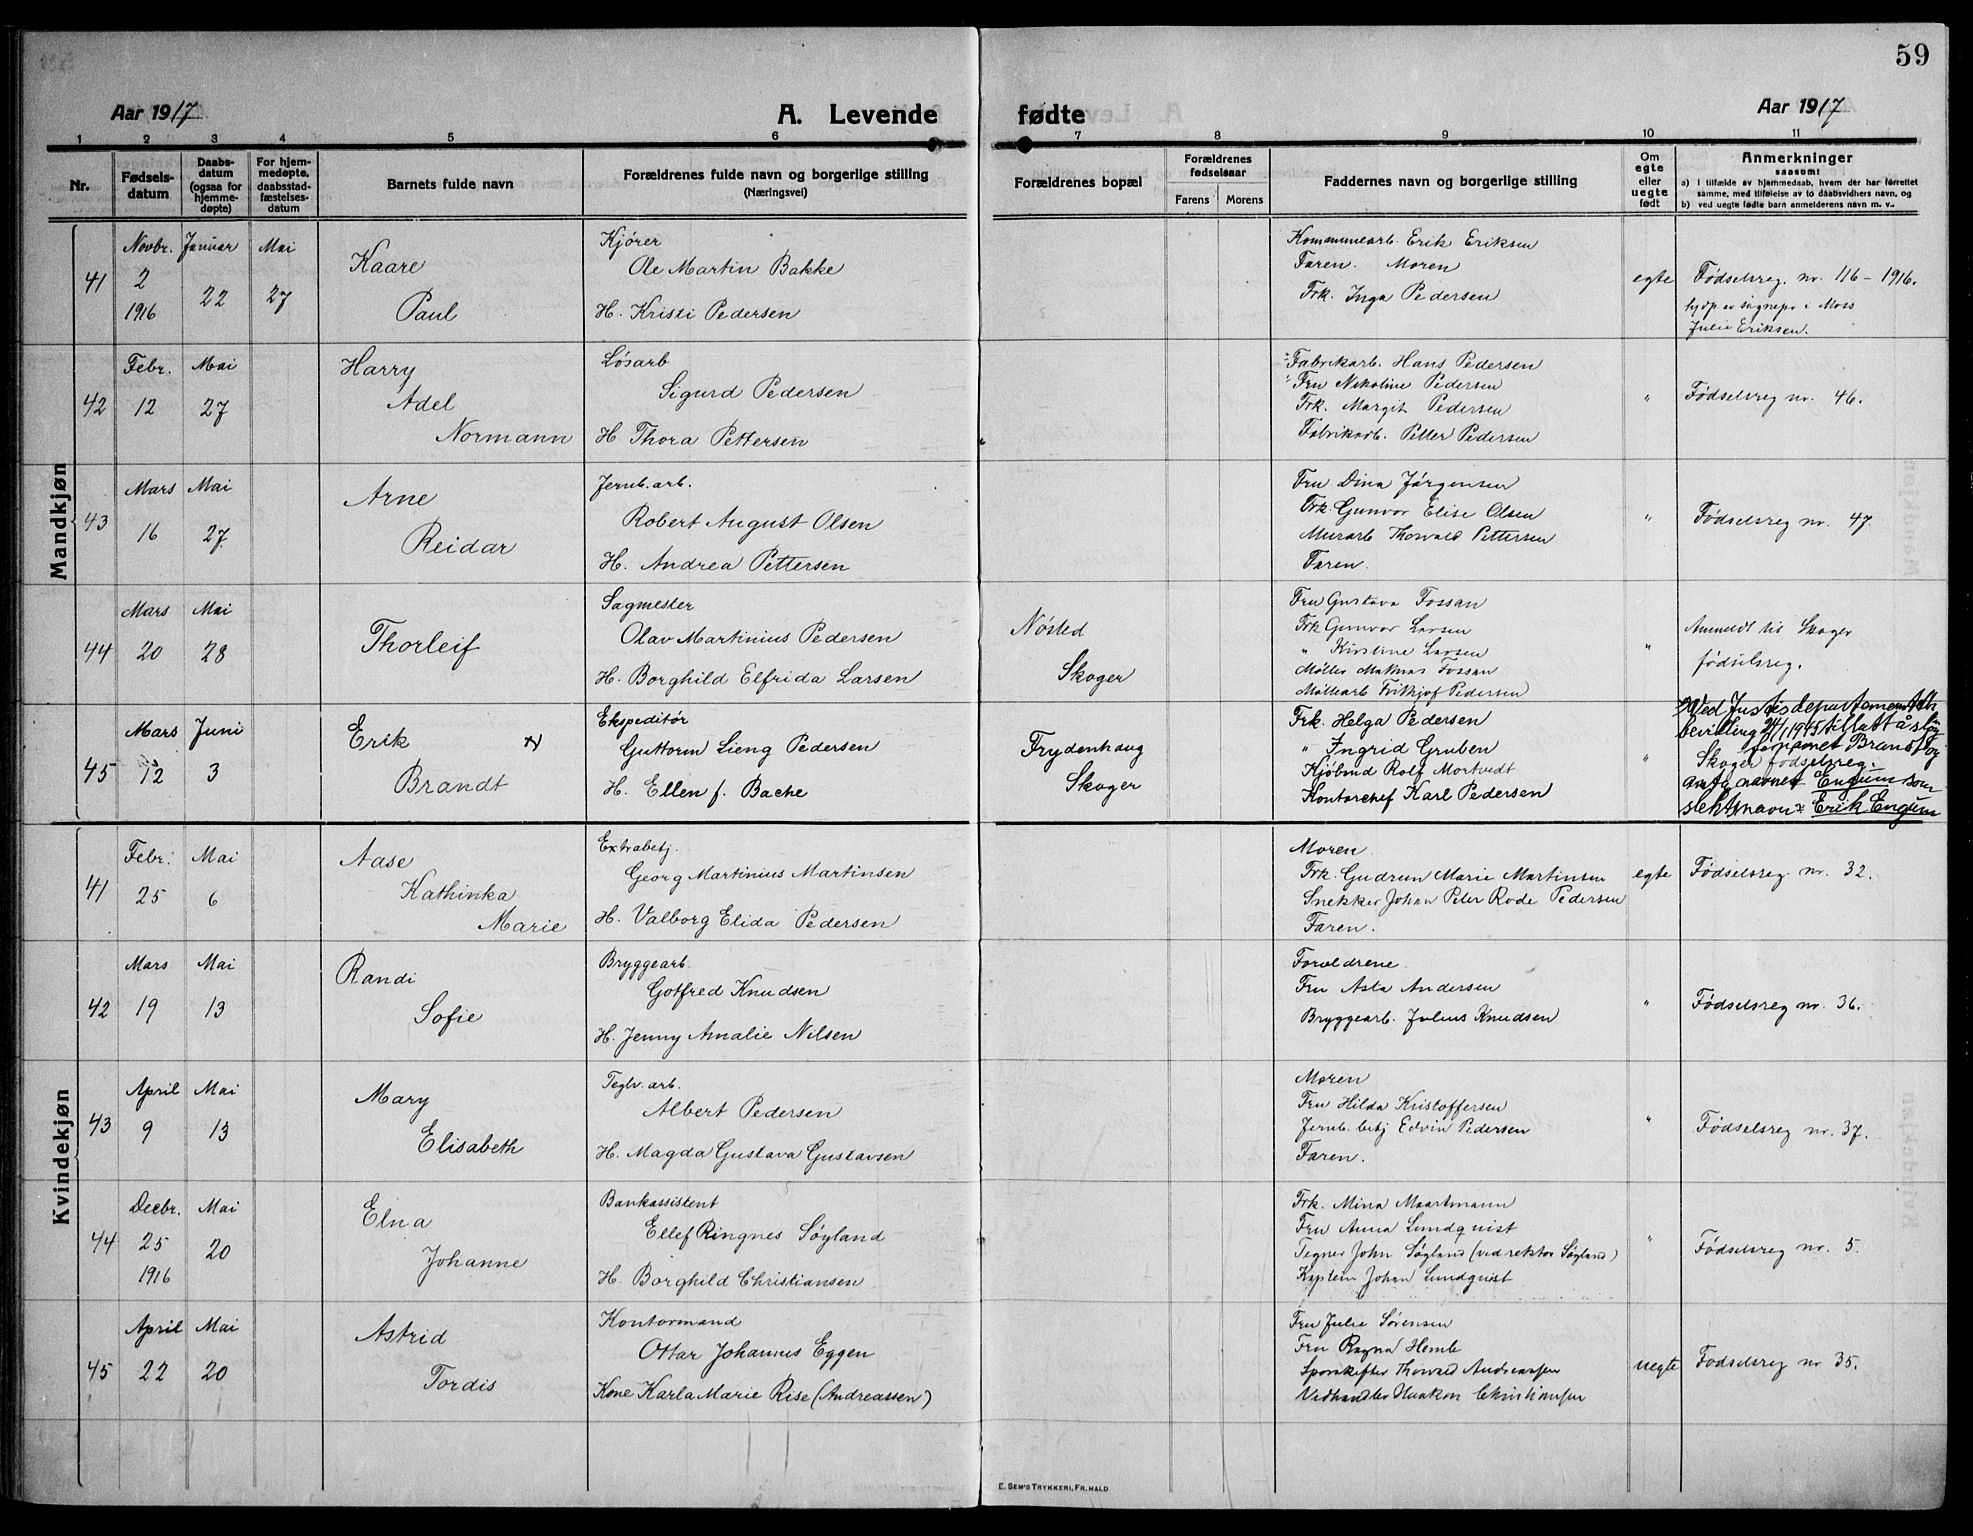 59
Aar 1917
A. Levende
fødte
Aar 1917
1 2 3 4 5 6 7 8 9 10 11
Nr.
Fødsels-
datum
Daabs-
datum
(ogsaa for
hjemme-
døpte)
For hjem-
medøpte,
daabsstad-
fæstelses-
datum
Barnets fulde navn
Forældrenes fulde navn og borgerlige stilling
(Næringsvei)
Forældrenes bopæl
Forældrenes
fødselsaar
Farens Morens
Faddernes navn og borgerlige stilling
Om
egte
eller
uegte
født
Anmerkninger
saasom:
a) I tilfælde av hjemmedaab, hvem der har forrettet
samme, med tilføielse av to daabsvidners navn, og
b) ved uegte fødte barn anmelderens navn m. v.
Mandkjøn
41
Novbr.
2
1916
Januar
22
Mai
27
Kaare
Paul
Kjører
Ole Martin Bakke
H. Kristi Pedersen
Kommunearb. Erik Eriksen
Faren. Moren
Frk. Inga Pedersen
egte
Fødselsreg. nr. 116 - 1916.
hjdp av sognepr i Moss
Julie Eriksen.
42
Febr.
12
Mai
27
Harry
Adel
Normann
Løsarb
Sigurd Pedersen
H Thora Pettersen
Fabrikarb. Hans Pedersen
Fru Nikoline Pedersen
Frk. Margit Pedersen
Fabrikarb. Petter Pedersen
"
Fødselsreg nr. 46.
43
Mars
16
Mai
27.
Arne
Reidar
Jernb. arb.
Robert August Olsen
H. Andrea Pettersen
Fru Dina Jørgensen
Frk. Gunvor Elise Olsen
Murarb Thorvald Pettersen
Faren.
"
Fødselsreg nr. 47.
44
Mars
20
Mai
28
Thorleif
Sagmester
Olav Martinius Pedersen
H. Borghild Elfrida Larsen
Nøsted
Skoger
Fru Gustava Fossan
Frk Gunvor Larsen
" Kirstine Larsen
Møller Fossan
Møllearb Fritkjof Pedersen
"
Anmeldt til Skoger
fødselsreg.
45
Mars
12
Juni
3
Erik
Brandt
Ekspeditør
Guttorm Lieng Pedersen
H. Ellen f. Bache
Frydenhaug
Skoger
Frk. Helga Pedersen
" Ingrid Gruben
Kjøbmd Rolf Mortvedt
Kontorchef Karl Pedersen
"
Ved Justisdepartementets
bevilling 24/1 1945 tillatt å sløife
fornavnet Brandt og
Skoger fødselsreg.
anta navnet Engum som
slektsnavn = Erik Engum
Kvindekjøn
41
Febr.
25
Mai
6
Aase
Kathinka
Marie
Extrabetj.
Georg Martinius Martinsen
H. Valborg Elida Pedersen
Moren
Frk. Gudrun Marie Martinsen
Snekker Johan Peter Rode Pedersen
Faren.
egte
Fødselsreg nr. 32.
42
Mars
19
Mai
13
Randi
Sofie
Bryggearb.
Gotfred Knudsen
H. Jenny Amalie Nilsen
Forældrene
Fru Asta Andersen
Bryggearb. Julius Knudsen
"
Fødselsreg nr. 36.
43
April
9
Mai
13
Mary
Elisabeth
Teglv. arb.
Albert Pedersen
H. Magda Gustava Gustavsen
Moren
Fru Hilda Kristoffersen
Jernb. betj Edvin Pedersen
Faren.
"
Fødselsreg nr. 37.
44
Decbr.
25
1916
Mai
20
Elna
Johanne
Bankassistent
Ellef Ringnes Søyland
H. Borghild Christiansen
Frk. Mina Maartmann
Fru Anna Lundquist
Tegner John Søyland (ved rektor Søyland)
Kaptein Johan Lundquist
"
Fødselsreg nr. 5.
45
April
22
Mai
20
Astrid
Tordis
Kontormand
Ottar Johannes Eggen
Kone Karla Marie Rise (Andreassen)
Fru Julie Sørensen
Fru Ragna Hemb
Sporskifter Thorvald Andreassen
Vedhandler Haakon Christiansen
uegte
Fødselsreg nr 35.
E. SEM'S TRYKKERI, FR.HALD